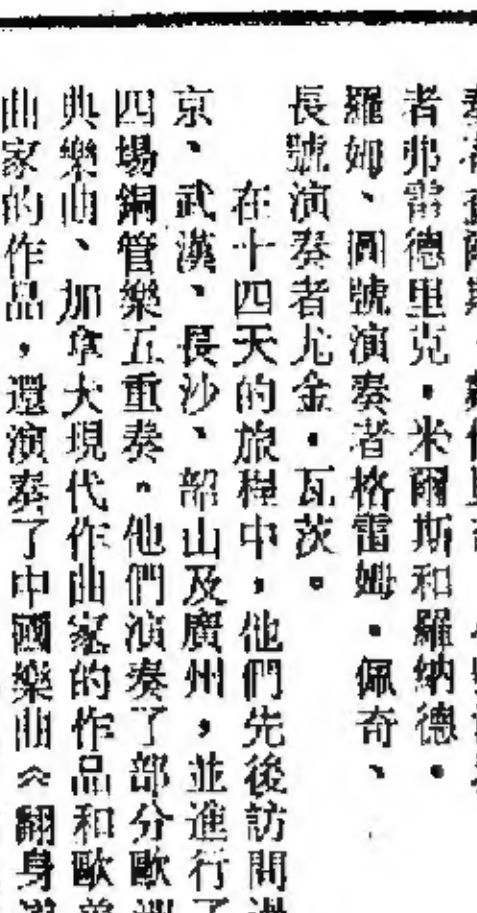 者弗雷德里克・米爾斯和羅納德・
羅姆、圓號演奏者格雷姆・佩奇、
長號演奏者尤金・瓦茨。
在十四天的旅程中，他們先後訪問
京、武漢、長沙、韶山及廣州，並進行了
四場銅管樂五重奏。他們演奏了部分歐洲
典樂曲、加拿大現代作曲家的作品和歐美
曲家的作品，還演奏了中國樂曲《翻身